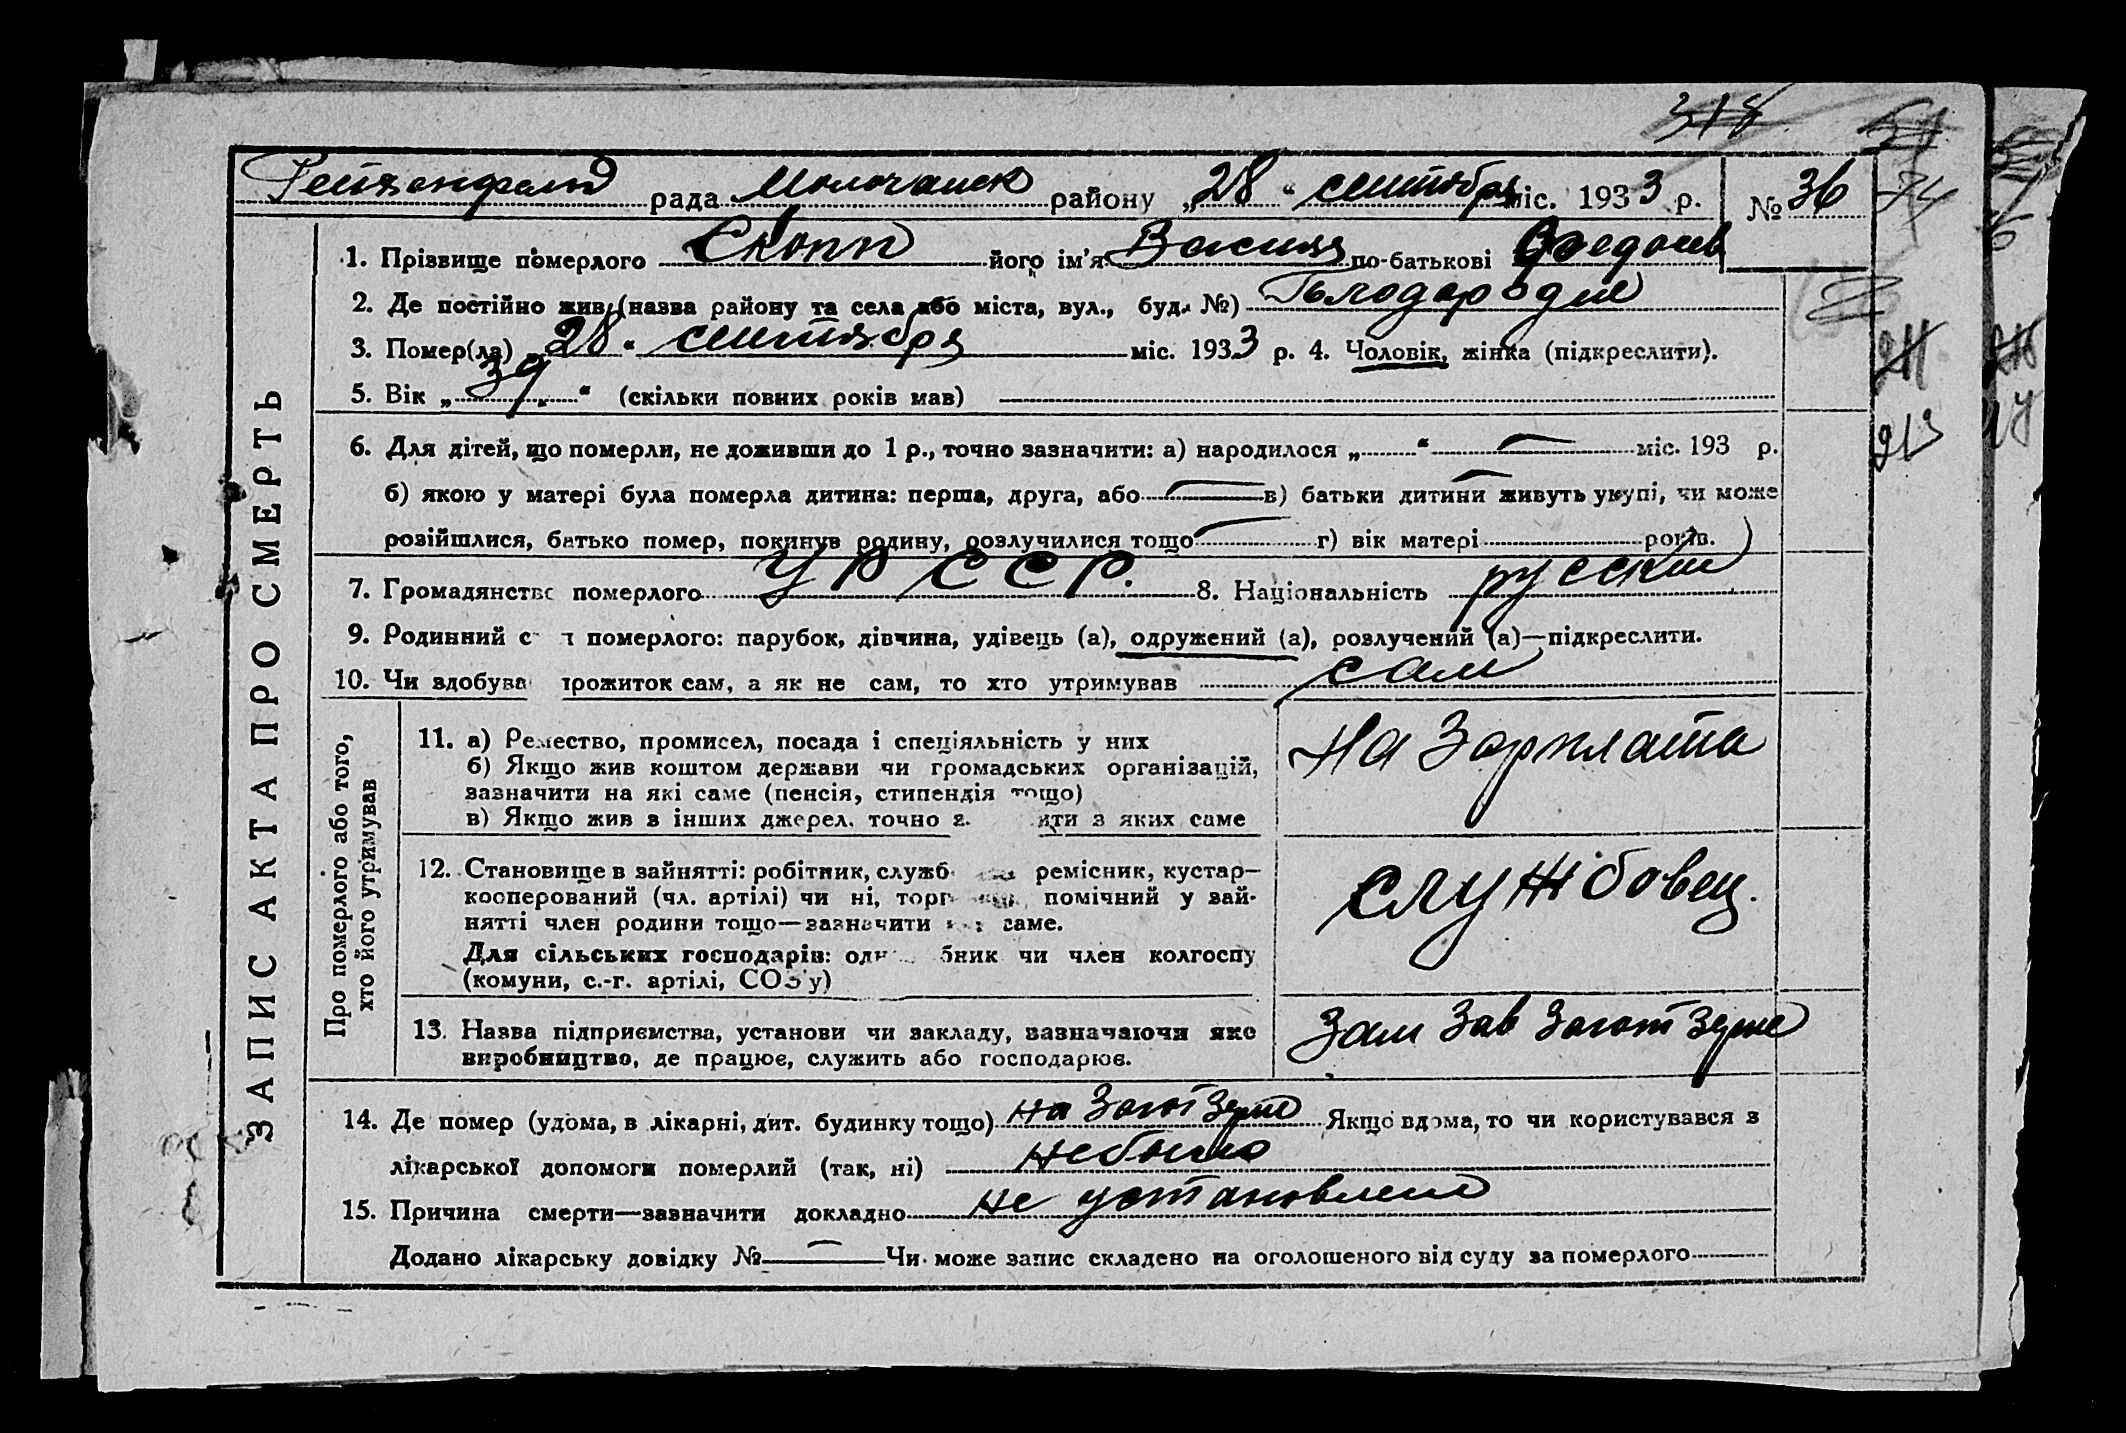 318
Рейхенфельд рада Молочанск району „28“ сентября міс. 1933 р. № 36
74
1. Прізвище померлого Скопп його ім'я Василя по-батькові
2. Де постійно жив (назва району та села або міста, вул., буд. №)
3. Помер(ла) „28“ сентября міс. 1933 р. 4. Чоловік, жінка (підкреслити).
5. Вік „39“ (скільки повних років мав)
213
6. Для дітей, що померли, не доживши до 1 р., точно зазначити: а) народилося „ “ міс. 193 р.
б) якою у матері була померла дитина: перша, друга, або в) батьки дитини живуть укупі, чи може
розійшлися, батько помер, покинув родину, розлучилися тощо г) вік матері років.
7. Громадянство померлого УРССР. 8. Національність русский
9. Родинний с н померлого: парубок, дівчина, удівець (а), одружений (а), розлучений (а)—підкреслити.
10. Чи здобува прожиток сам, а як не сам, то хто утримував сам
ЗАПИС АКТА ПРО СМЕРТЬ
Про померлого або того,
хто його утримував
11. а) Ремество, промисел, посада і спеціяльність у них
б) Якщо жив коштом держави чи громадських організацій,
зазначити на які саме (пенсія, стипендія тощо)
в) Якщо жив з інших джерел, точно з ити з яких саме
на Зарплата
12. Становище в зайнятті: робітник, служб ремісник, кустар—
кооперований (чл. артілі) чи ні, торг помічний у зай-
нятті член родини тощо—зазначити саме.
Для сільських господарів: одн бник чи член колгоспу
(комуни, с.-г. артілі, СОЗ'у)
службовец.
13. Назва підприємства, установи чи закладу, зазначаючи яке
виробництво, де працює, служить або господарює.
Зам Зав Заготзерно
14. Де помер (удома, в лікарні, дит. будинку тощо) на Заготзерно Якщо вдома, то чи користувався з
лікарської допомоги померлий (так, ні) небыло
15. Причина смерти—зазначити докладно не установлено
Додано лікарську довідку № Чи може запис складено на оголошеного від суду за померлого